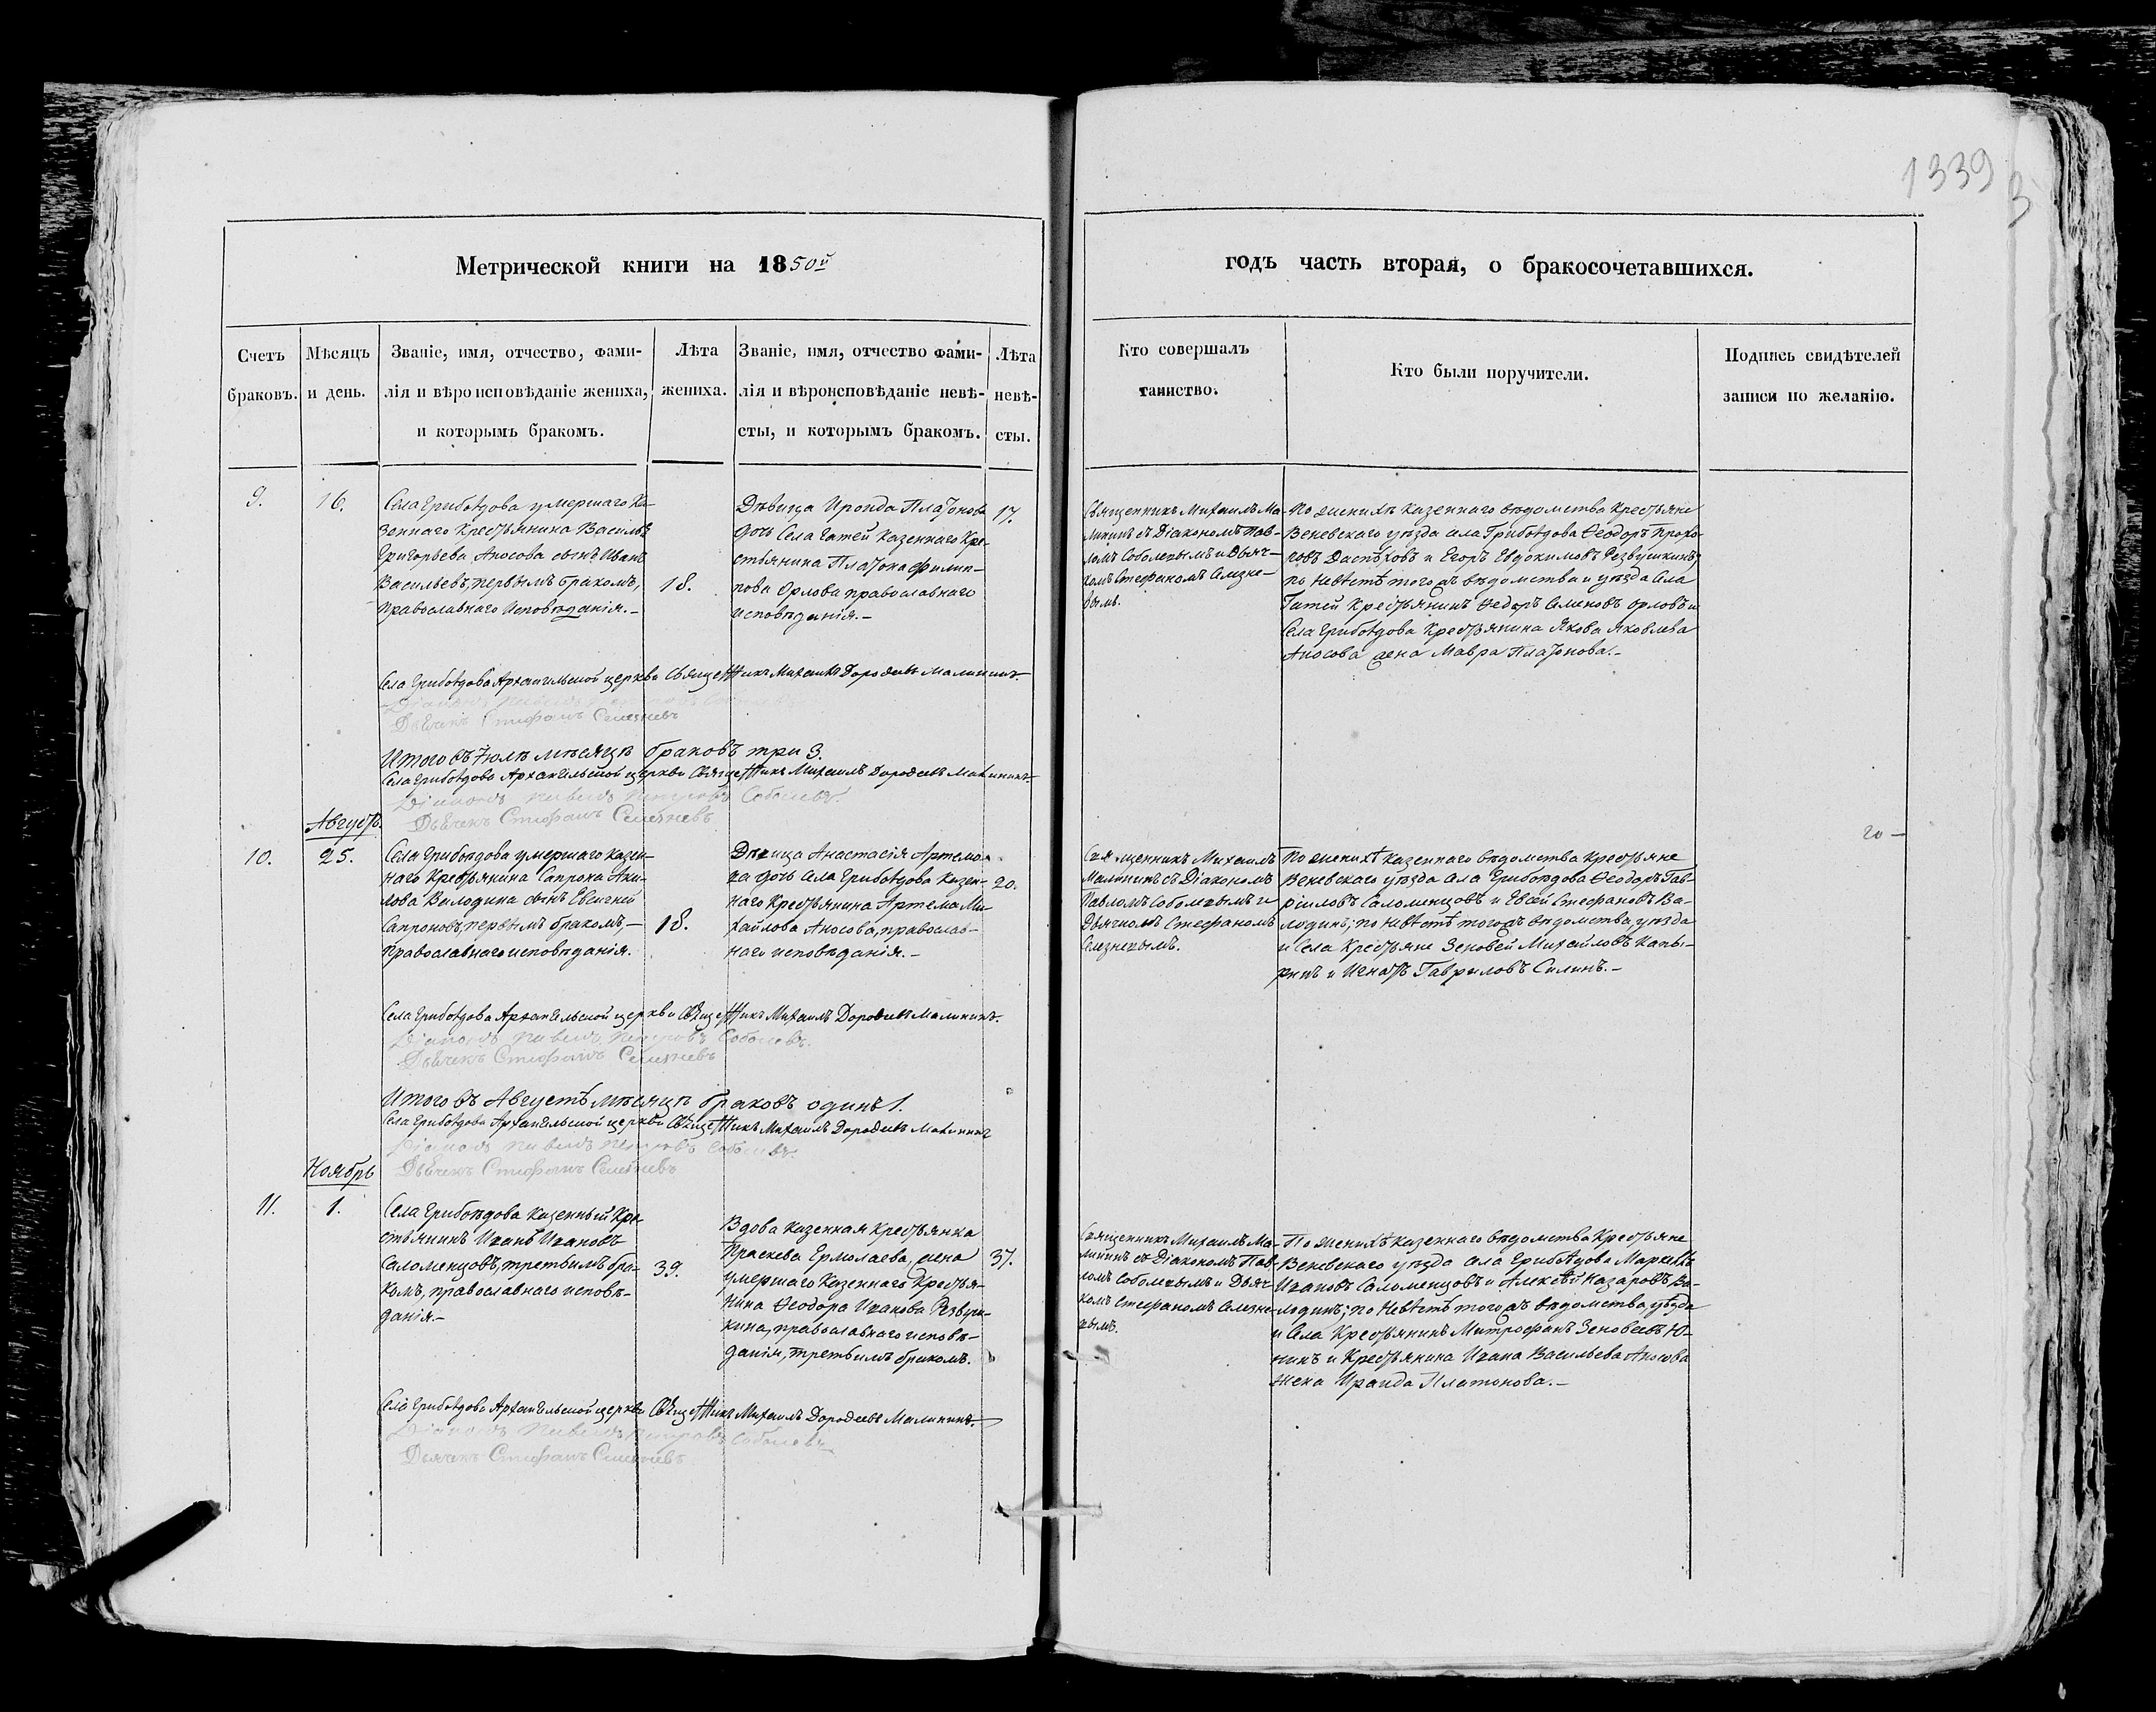 1339
3
Метрической книги на 1850й
годъ часть вторая, о бракосочетавшихся.
Счетъ браковъ.
Мѣсяцъ и день.
Званіе, имя, отчество, фами-
лія и вѣроисповѣданіе жениха,
и которымъ бракомъ.
Лѣта
жениха.
Званіе, имя, отчество фами-
лія и вѣроисповѣданіе невѣ-
сты, и которымъ бракомъ.
Лѣта
невѣ-
сты.
Кто совершалъ
таинство.
Кто были поручители.
Подпись свидѣтелей
записи по желанію.
9.
16.
Села Грибоѣдова умершаго Ка-
зеннаго Крестьянина Василья
Григорьева Аносова сынъ Иванъ
Васильевъ, первымъ бракомъ,
Православнаго Исповѣданія.-
18.
Дѣвица Ироида Платонова
дочь Села Гатей Казеннаго Кре-
стьянина Платона Филип-
пова Орлова православнаго
исповѣданія.-
17.
Священникъ Михаилъ Ма-
лининъ съ Діакономъ Пав-
ломъ Соболевымъ и Дьяч-
комъ Стефаномъ Селезне-
вымъ.
По женихѣ казеннаго вѣдомства Крестьяне
Веневскаго уѣзда села Грибоѣдова Ѳеодоръ Прохо-
ровъ Даспѣховъ и Егоръ Евдокимовъ Резвушкинъ;
по Невѣстѣ того жъ вѣдомства и уѣзда Села
Гатей Крестьянинъ Ѳедоръ Семеновъ Орловъ и
Села Грибоѣдова Крестьянина Якова Яковлева
Аносова жена Мавра Платонова.-
Села Грибоѣдова Архангельской церкви Священникъ Михаилъ Дороѳеевъ Малининъ.
Дьячекъ Стефанъ Селезневъ
Итого въ Іюлѣ мѣсяцѣ браковъ три 3.
Села Грибоѣдова Архангельской церкви Священникъ Михаилъ Дороѳеевъ Малининъ.
Діаконъ Павелъ Петровъ Соболевъ.
Дьячекъ Стефанъ Селезневъ
Августъ.
20 -
10.
25.
Села Грибоѣдова умершаго Казен-
наго Крестьянина Сапрона Аки-
лова Вилодина сынъ Евгеній
Сапроновъ, первымъ бракомъ,-
Православнаго исповѣданія.
18.
Дѣвица Анастасія Артемо-
ва дочь Села Грибоѣдова Казен-
наго Крестьянина Артема Ми-
хайлова Аносова, православ-
наго исповѣданія.-
20.
Священникъ Михаилъ
Малининъ съ Діакономъ
Павломъ Соболевымъ и
Дьячкомъ Стефаномъ
Селезневымъ.
По женихѣ казеннаго вѣдомства Крестьяне
Веневскаго уѣзда Села Грибоѣдова Ѳеодоръ Гав-
риловъ Саломенцовъ и Евсей Стефановъ Ва-
лодинъ; по Невѣстѣ того жъ вѣдомства, уѣзда
и Села Крестьяне Зеновей Михайловъ Капы-
ринъ и Игнатъ Гавриловъ Силинъ.-
Села Грибоѣдова Архангельской церкви Священникъ Михаилъ Дороѳеевъ Малининъ.
Діаконъ Павелъ Петровъ Соболевъ.
Дьячекъ Стефанъ Селезневъ
Итого въ Августѣ мѣсяцѣ браковъ одинъ 1.
Села Грибоѣдова Архангельской церкви Священникъ Михаилъ Дороѳеевъ Малининъ
Діаконъ Павелъ Петровъ Соболевъ.
Дьячекъ Стефанъ Селезневъ
Ноябрь
11.
1.
Села Грибоѣдова Казенный Кре-
стьянинъ Иванъ Ивановъ
Саломенцовъ, третьимъ бра-
комъ, православнаго исповѣ-
данія.-
39.
Вдова Казенная Крестьянка
Праскева Ермолаева, жена
умершаго Казеннаго Крестья-
нина Ѳеодора Иванова Резвуш-
кина, православнаго исповѣ-
данія, третьимъ бракомъ.
37.
Священникъ Михаилъ Ма-
лининъ съ Діакономъ Пав-
ломъ Соболевымъ и Дьяч-
комъ Стефаномъ Селезне-
вымъ.
По женихѣ казеннаго вѣдомства Крестьяне
Веневскаго уѣзда Села Грибоѣдова Маркелъ
Ивановъ Саломенцовъ и Алексѣй Назаровъ Ва-
лодинъ; по Невѣстѣ того жъ вѣдомства, уѣзда
и Села Крестьянинъ Митрофанъ Зеновеевъ Ю-
нинъ и Крестьянина Ивана Васильева Аносова
жена Ираида Платонова.-
Села Грибоѣдова Архангельской церкви Священникъ Михаилъ Дороѳеевъ Малининъ.
Діаконъ Павелъ Петровъ Соболевъ
Дьячекъ Стефанъ Селезневъ